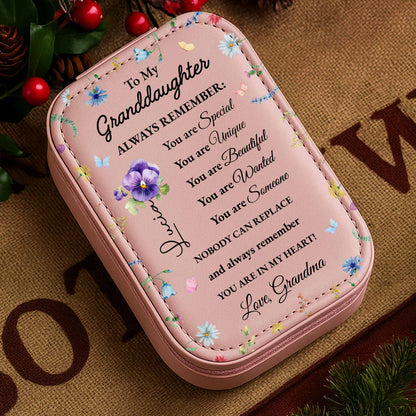 To My
Granddaughter
ALWAYS REMEMBER:
You are Special
You are Unique
You are Beautiful
You are Wanted
You are Someone
NOBODY CAN REPLACE
and always remember
YOU ARE IN MY HEART!
Love, Grandma